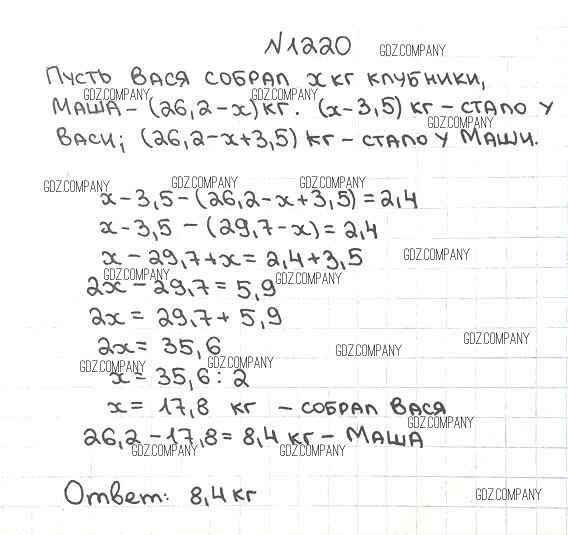 №1220 GDZ.COMPANY
Пусть Вася собрал x кг клубники,
GDZ.COMPANY GDZ.COMPANY
Маша – (26,2-x) кг. (x-3,5) кг – стало у
GDZ.COMPANY
Васи; (26,2-x+3,5) кг – стало у Маши.
GDZ.COMPANY GDZ.COMPANY GDZ.COMPANY
x - 3,5 - (26,2-x+3,5) = 2,4
x - 3,5 - (29,7-x) = 2,4
x - 29,7+x = 2,4+3,5 GDZ.COMPANY
GDZ.COMPANY GDZ.COMPANY
2x - 29,7 = 5,9
2x = 29,7 + 5,9
GDZ.COMPANY
2x = 35,6 GDZ.COMPANY
GDZ.COMPANY GDZ.COMPANY
x = 35,6 : 2
x = 17,8 кг – собрал Вася
GDZ.COMPANY
26,2 - 17,8 = 8,4 кг – Маша
GDZ.COMPANY GDZ.COMPANY
Ответ: 8,4 кг GDZ.COMPANY